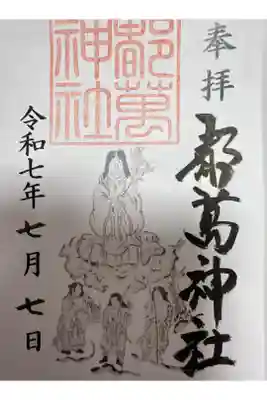 奉拝
都萬神社
都萬神社
令和七年七月七日